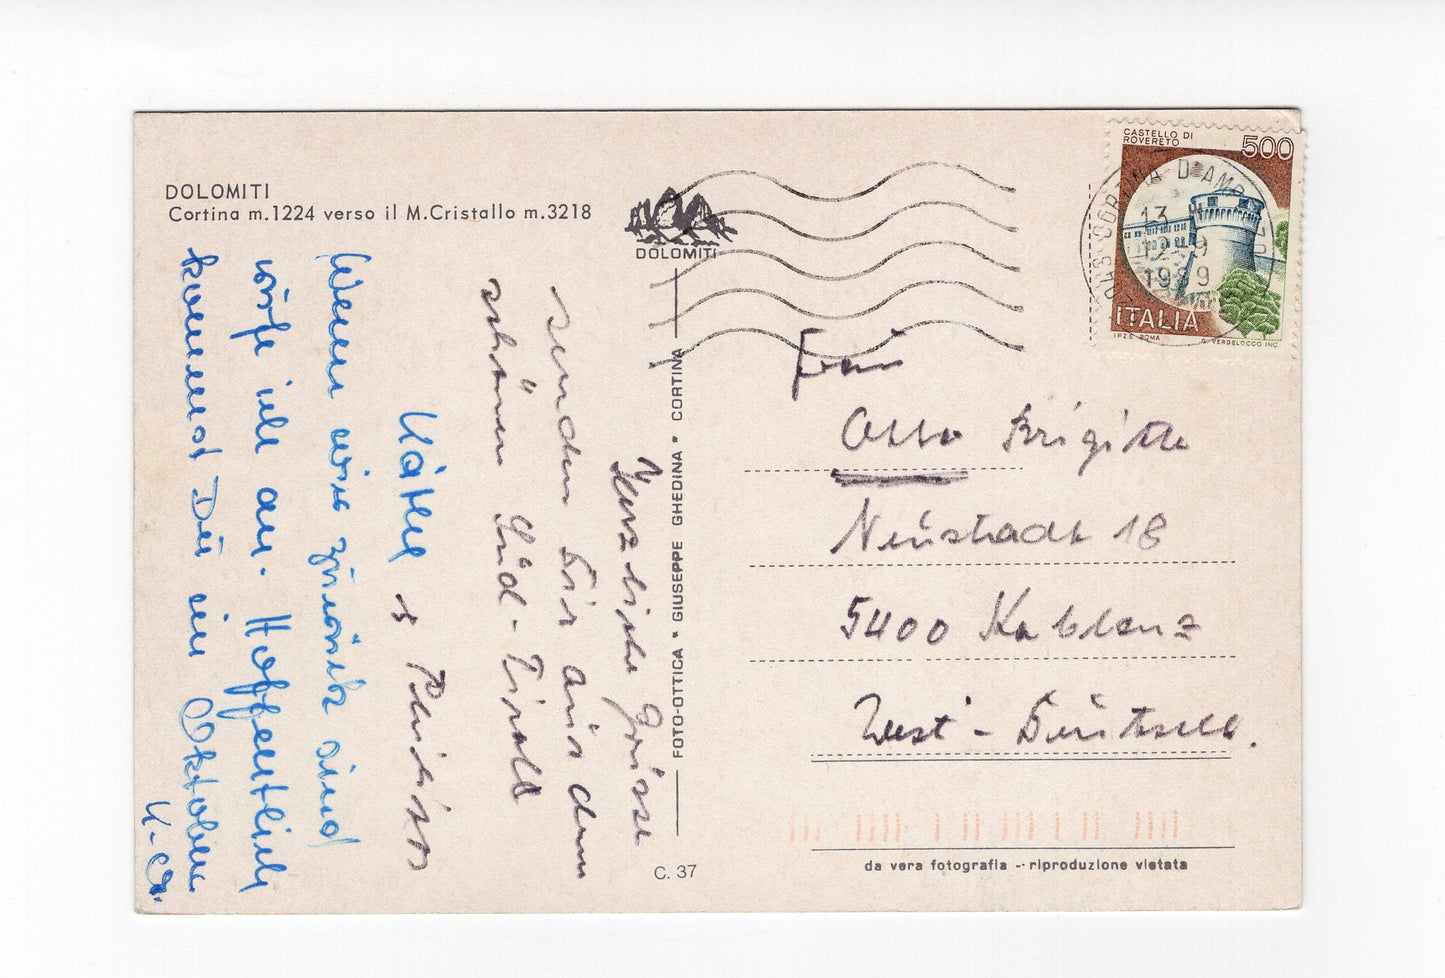 DOLOMITI
Cortina m.1224 verso il M.Cristallo m.3218
DOLOMITI
CASTELLO DI
ROVERETO
500
ITALIA
I.P.Z.S. ROMA
G. VERDELOCCO INC.
CORTINA D'AMPEZZO
13
12-9
1989
FOTO-OTTICA • GIUSEPPE GHEDINA • CORTINA
Frau
Otto Brigitte
Neustadt 18
5400 Koblenz
West-Deutschl.
Herzliche Grüsse
senden Dir aus dem
schönen Süd-Tiroll
Käthe
Wenn wir zurück sind
rufe ich an. Hoffentlich
kommst Du im Oktober
C. 37
da vera fotografia -- riproduzione vietata